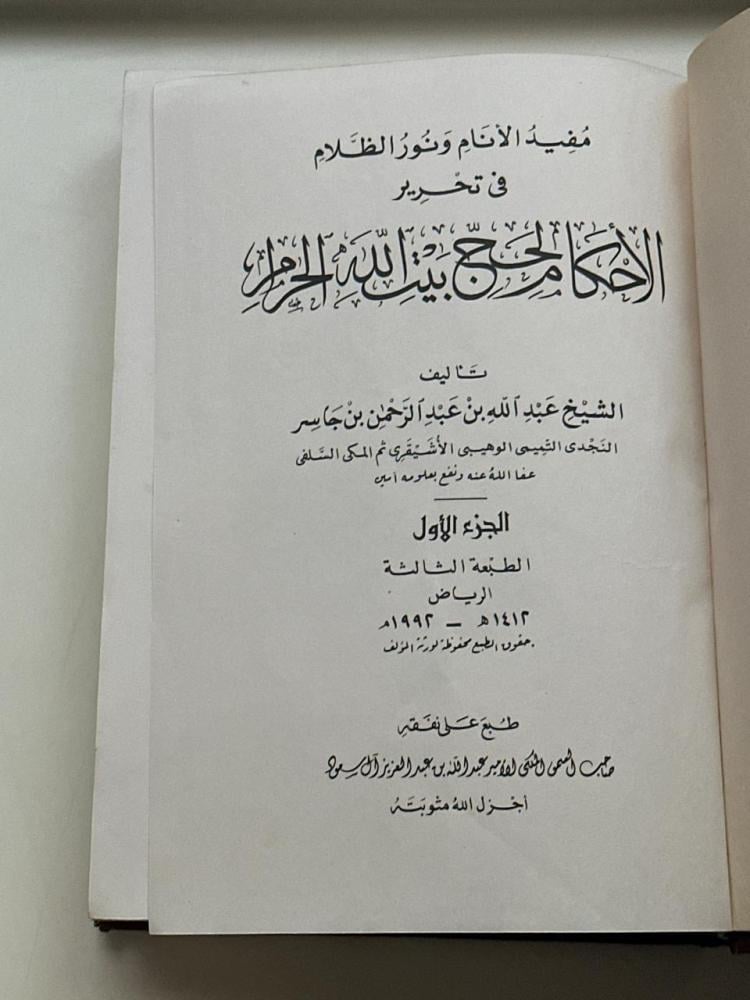 مُفِيدُ الأنَامِ وَنُورُ الظَّلامِ
فى تحْرِير
الأحْكَام لحَجّ بَيْتِ اللهِ الحَرامِ
تَأليف
الشيْخ عَبْدِ اللهِ بنْ عَبْدِ الرَّحْمٰن بنْ جَاسِر
النَجْدى التَّمِيمى الوهيبى الأُشَيْقَرى ثم المكى السَّلفى
عفا اللهُ عنه ونفع بعلومه آمين
الجزء الأول
الطبْعة الثالثة
الرياض
١٤١٢ هـ – ١٩٩٢ م
حقوق الطبع محفوظة لورثة المؤلف
طُبعَ عَلى نفَقةِ
صاحب السمو الملكى الأمير عبد الله بن عبد العزيز آل سعود
أجْزل اللهُ مثوبَتَهُ